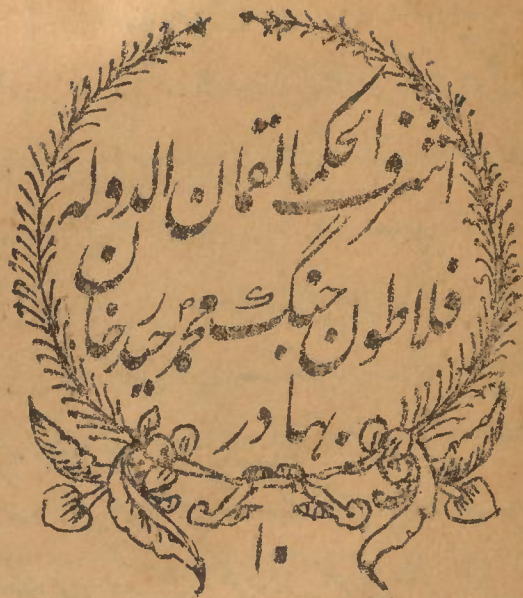 اشرف الحکما لقمان الدولہ
فلاطون جنگ محمد حیدر خان
بہادر
۱۰